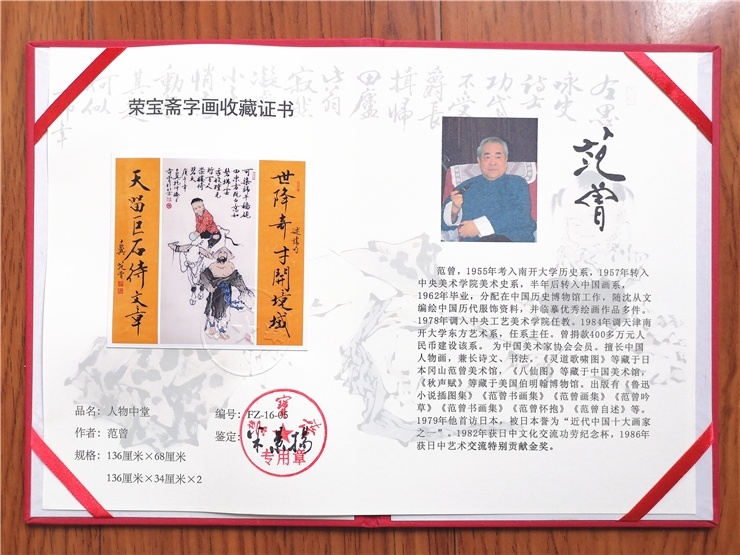 荣宝斋字画收藏证书
世降奇才開境域
天留巨石待文章
品名：人物中堂
编号：FZ-16-05
作者：范曾
鉴定：
规格：136厘米×68厘米
136厘米×34厘米×2
专用章
范曾
范曾，1955年考入南开大学历史系，1957年转入
中央美术学院美术史系，半年后转入中国画系，
1962年毕业，分配在中国历史博物馆工作，随沈从文
编绘中国历代服饰资料，并临摹优秀绘画作品多件。
1978年调入中央工艺美术学院任教。1984年调天津南
开大学东方艺术系，任系主任。曾捐款400多万元人
民币建设该系。 为中国美术家协会会员。擅长中国
人物画，兼长诗文、书法。《灵道歌啸图》等藏于日
本冈山范曾美术馆，《八仙图》等藏于中国美术馆，
《秋声赋》等藏于美国伯明翰博物馆。出版有《鲁迅
小说插图集》《范曾书画集》《范曾画集》《范曾吟
草》《范曾书画集》《范曾怀抱》《范曾自述》等。
1979年他首访日本，被日本誉为“近代中国十大画家
之一”。1982年获日中文化交流功劳纪念杯，1986年
获日中艺术交流特别贡献金奖。